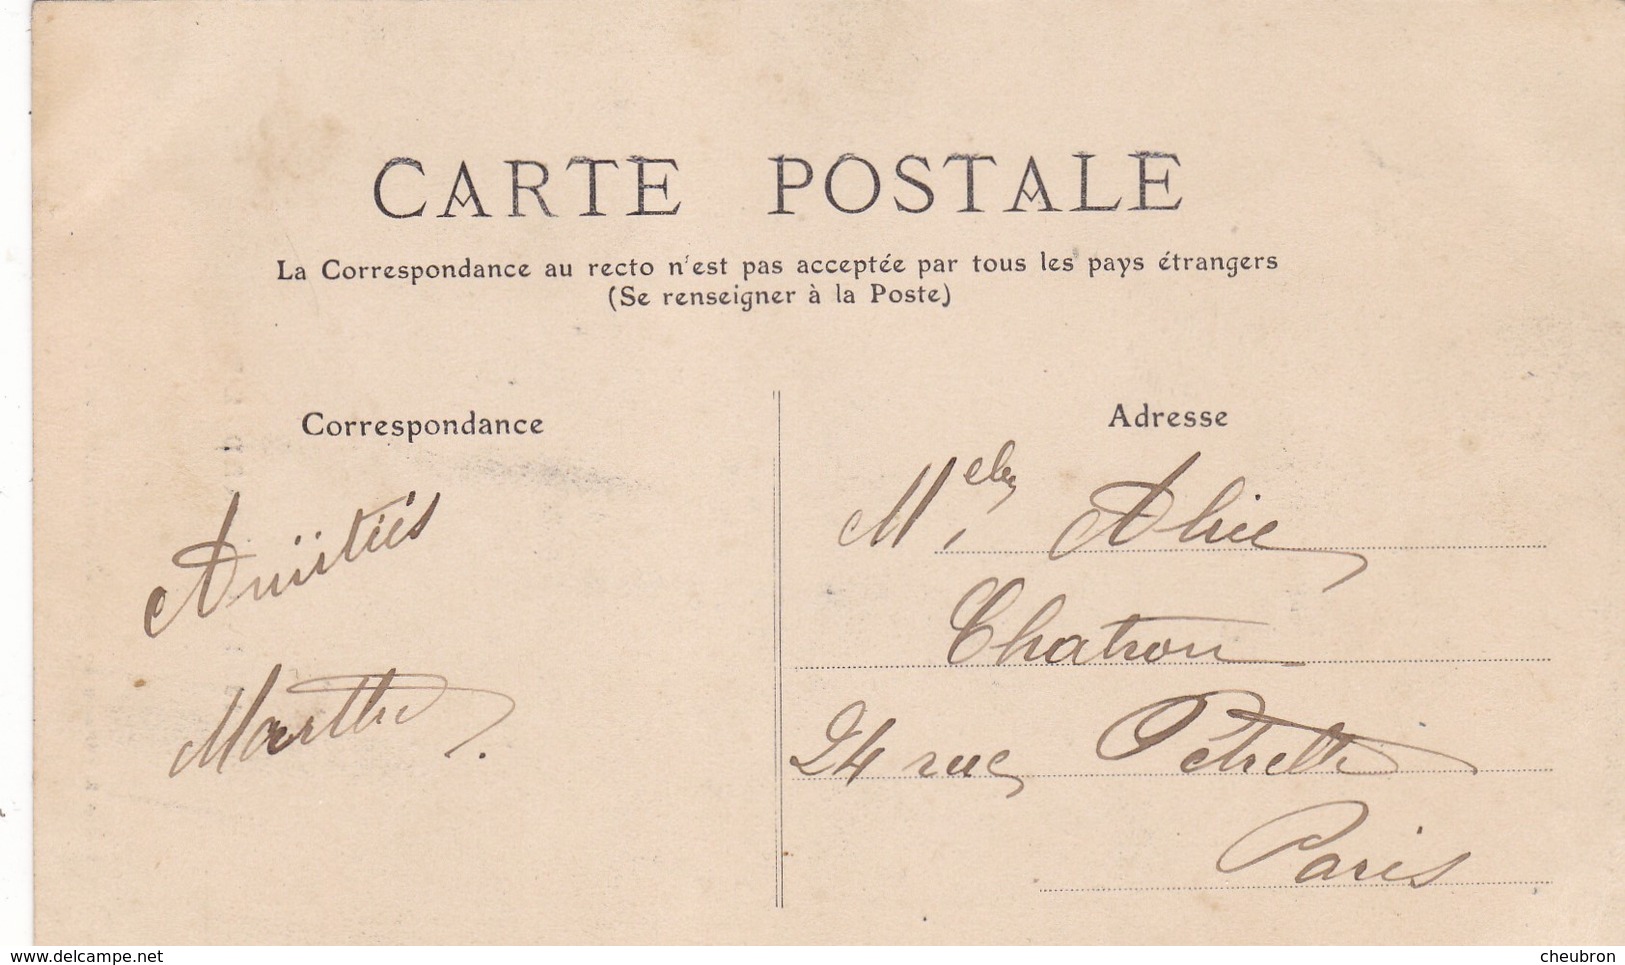 CARTE POSTALE
La Correspondance au recto n'est pas acceptée par tous les pays étrangers
(Se renseigner à la Poste)
Correspondance
Amitiés
Marthe.
Adresse
Melle Alice
Chatron
24 rue Pétrelle
Paris
www.delcampe.net
cheubron